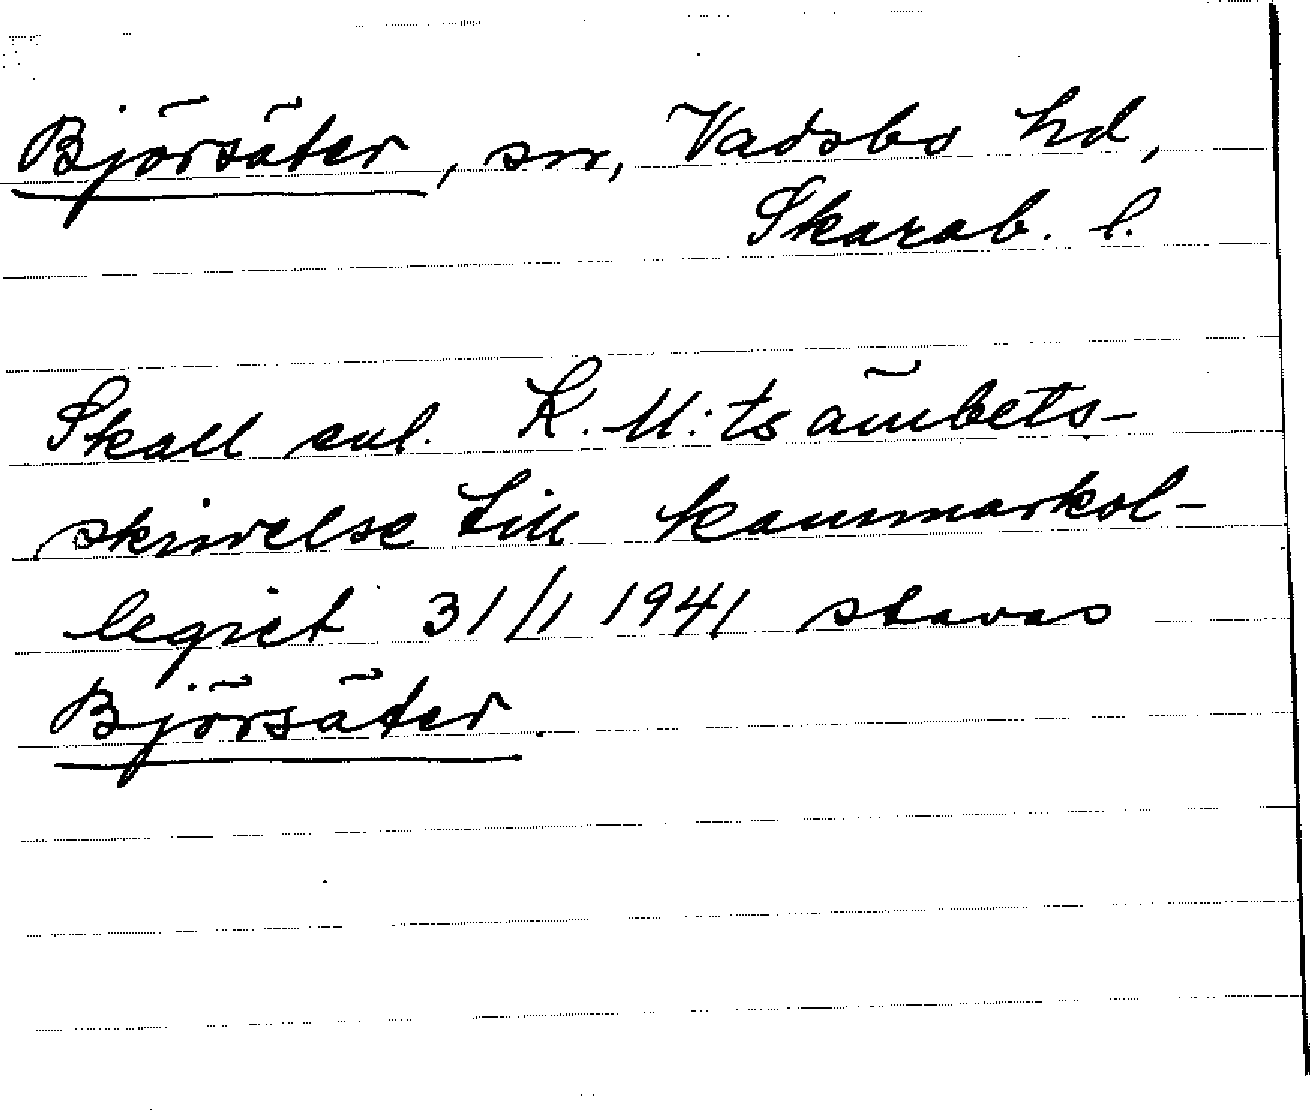 Björsäter, sn, Vadsbo hd,
Skarab. l.
Skall enl. K. M:ts ämbets-
skrivelse till kammarkol-
legiet 31/1 1941 stavas
Björsäter.